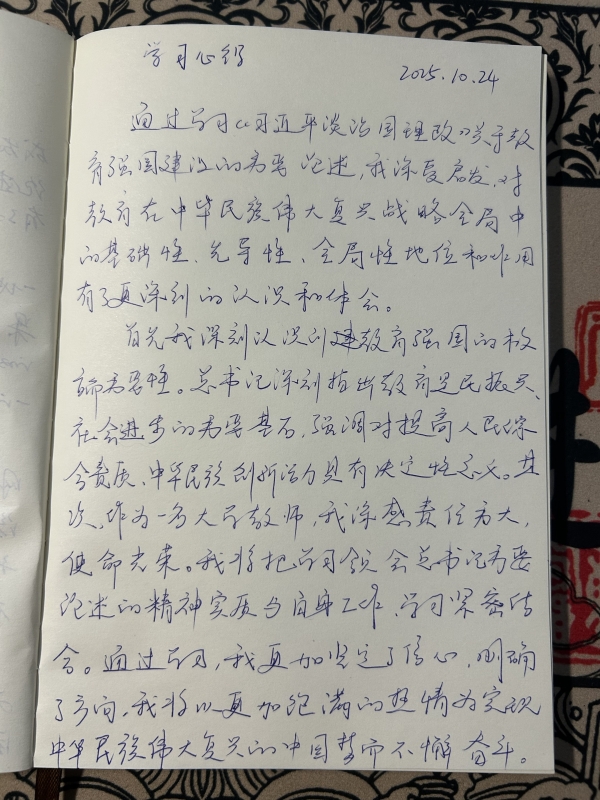 学习心得
2025.10.24
通过学习《习近平谈治国理政》关于教
育强国建设的重要论述，我深受启发，对
教育在中华民族伟大复兴战略全局中
的基础性、先导性、全局性地位和作用
有了更深刻的认识和体会。
首先我深刻认识到建教育强国的极
端重要性。总书记深刻指出教育是民族振兴、
社会进步的重要基石，强调对提高人民综
合素质、中华民族创新活力具有决定性意义。其
次，作为一名大学教师，我深感责任重大，
使命光荣。我将把学习领会总书记重要
论述的精神实质与自身工作、学习紧密结
合。通过学习，我更加坚定了信心，明确
了方向，我将以更加饱满的热情为实现
中华民族伟大复兴的中国梦而不懈奋斗。